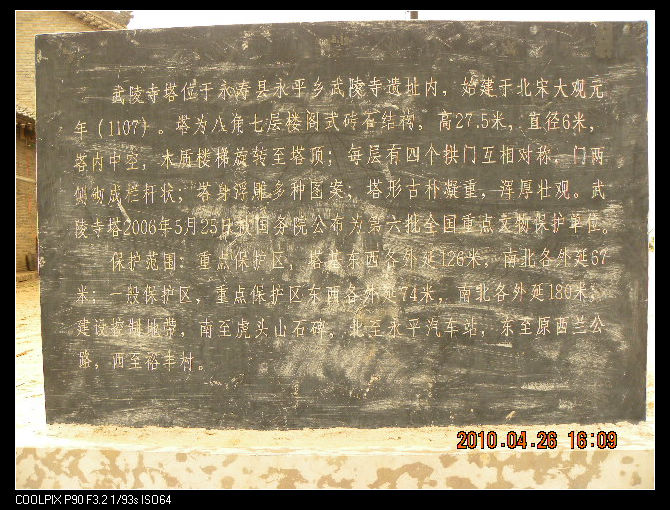 武陵寺塔位于永寿县永平乡武陵寺遗址内，始建于北宋大观元
年（1107）。塔为八角七层楼阁式砖石结构，高27.5米，直径6米，
塔内中空，木质楼梯旋转至塔顶；每层有四个拱门互相对称，门两
侧砌成栏杆状；塔身浮雕多种图案；塔形古朴凝重，浑厚壮观。武
陵寺塔2006年5月25日被国务院公布为第六批全国重点文物保护单位。
保护范围：重点保护区，塔基东西各外延126米，南北各外延67
米；一般保护区，重点保护区东西各外延74米，南北各外延180米；
建设控制地带，南至虎头山石碑，北至永平汽车站，东至原西兰公
路，西至裕丰村。
2010.04.26 16:09
COOLPIX P90 F3.2 1/93s ISO64